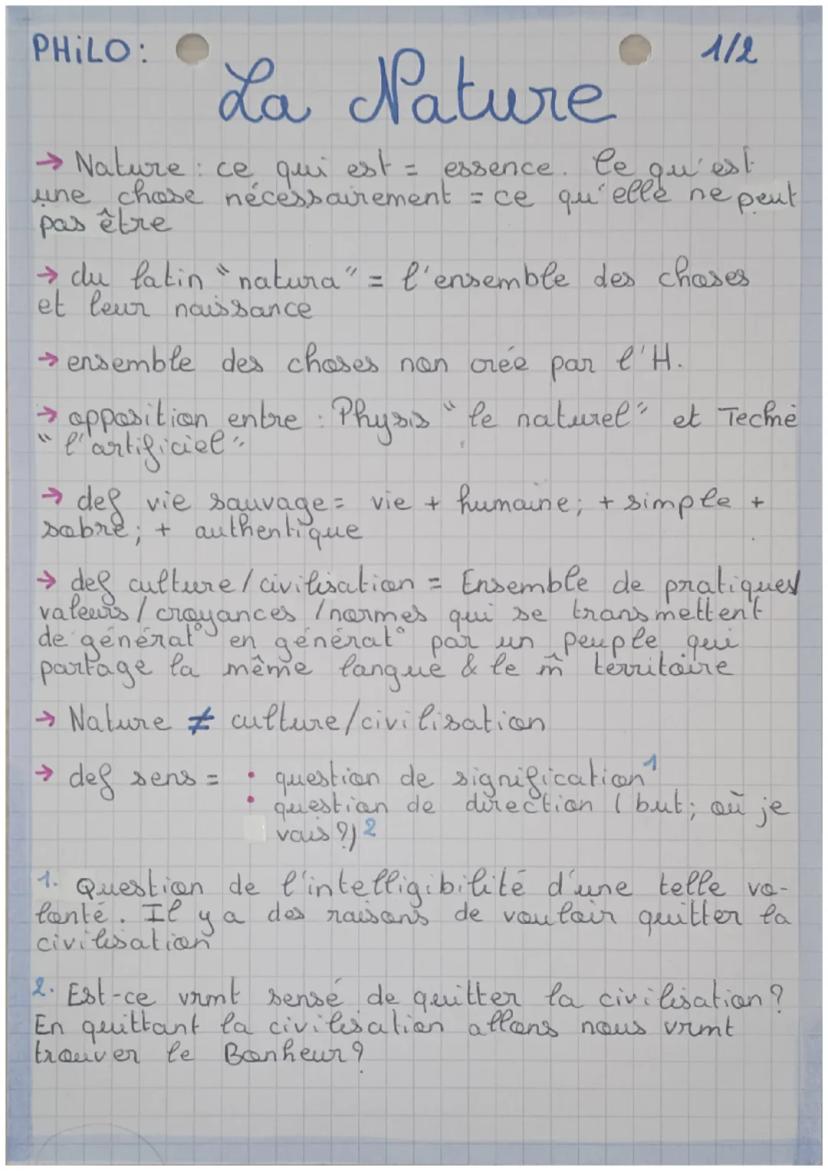 PHiLO:
1/2
La Nature
→ Nature : ce qui est = essence. Ce qu'est
une chose nécessairement = ce qu'elle ne peut
pas être
→ du latin "natura" = l'ensemble des choses
et leur naissance
→ ensemble des choses non crée par l'H.
→ opposition entre : Physis "le naturel" et Techné
"l'artificiel"
→ def vie sauvage = vie + humaine; + simple +
sobre; + authentique
→ def culture/civilisation = Ensemble de pratiques/
valeurs/croyances/normes qui se transmettent
de générat° en générat° par un peuple qui
partage la même langue & le m̂ territoire
→ Nature ≠ culture/civilisation
→ def sens = • question de signification¹
• question de direction (but; où je
vais?)²
1. Question de l'intelligibilité d'une telle vo-
lonté. Il y a des raisons de vouloir quitter la
civilisation
2. Est-ce vrmt sensé de quitter la civilisation?
En quittant la civilisation allons nous vrmt
trouver le Bonheur?